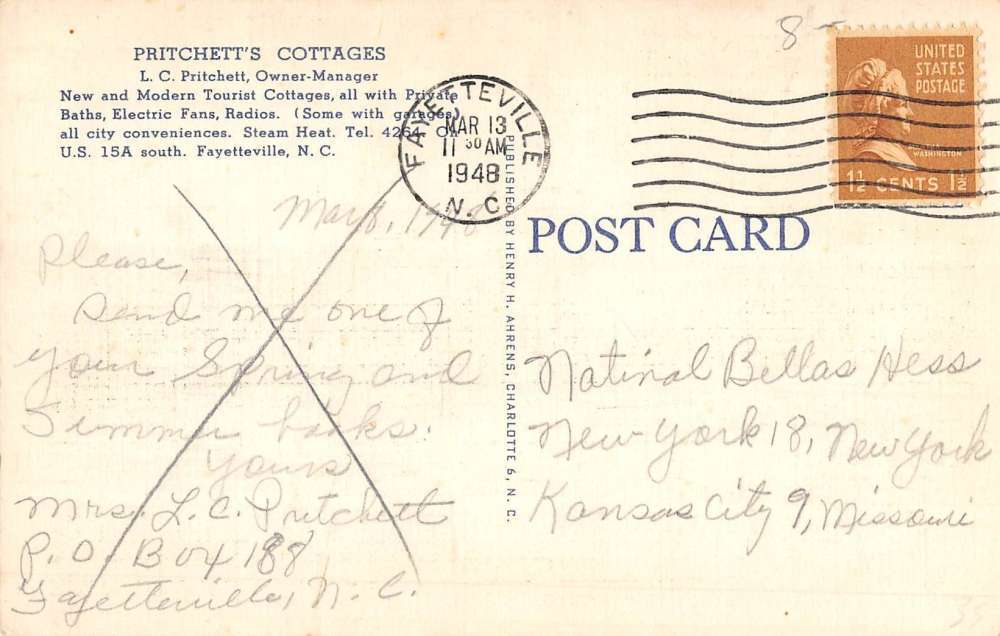 PRITCHETT'S COTTAGES
L. C. Pritchett, Owner-Manager
New and Modern Tourist Cottages, all with Private
Baths, Electric Fans, Radios. (Some with garages)
all city conveniences. Steam Heat. Tel. 4264. On
U.S. 15A south. Fayetteville, N. C.
FAYETTEVILLE
MAR 13
11 30 AM
1948
N. C.
8-
UNITED
STATES
POSTAGE
WASHINGTON
1½ CENTS 1½
POST CARD
PUBLISHED BY HENRY H. AHRENS, CHARLOTTE 6, N. C.
Please,
Send me one of
your Spring and
Summer books.
Yours
Mrs. L. C. Pritchett
P. O. Box 188
Fayetteville, N. C.
Natinal Bellas Hess
New York 18, New York
Kansas City 9, Missouri